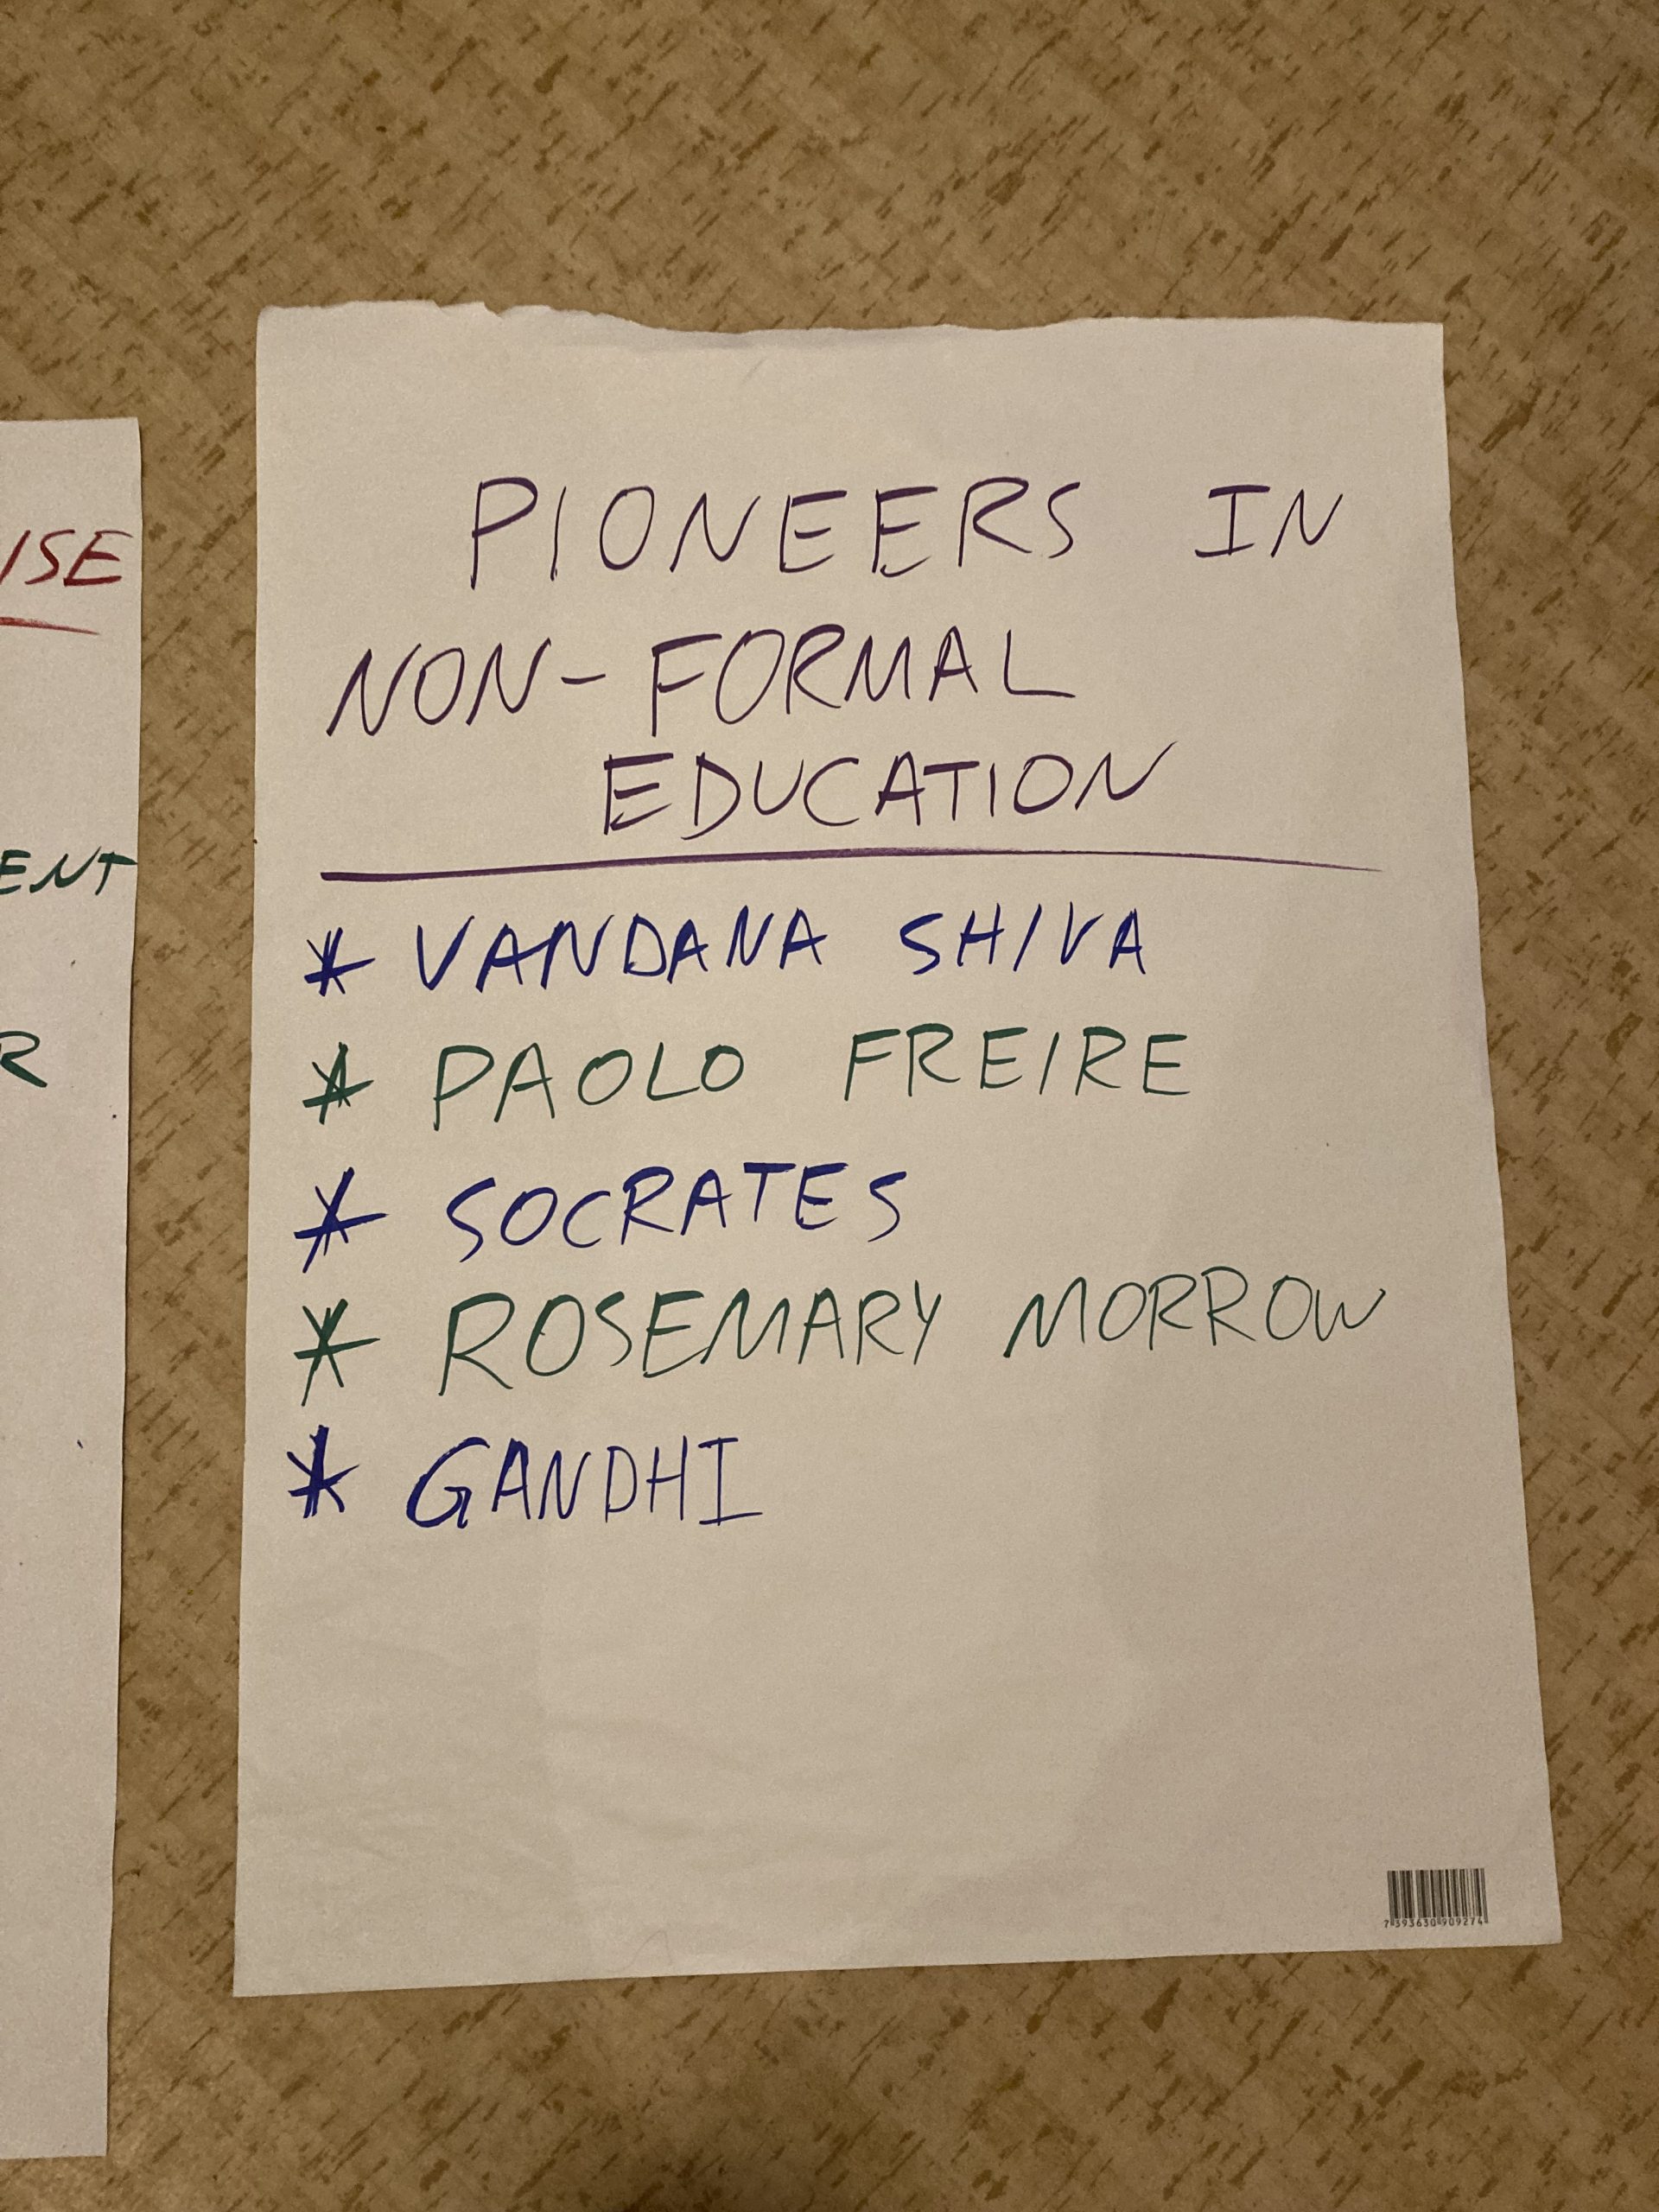 ISE
ENT
R
PIONEERS IN
NON-FORMAL
EDUCATION
* VANDANA SHIVA
* PAOLO FREIRE
* SOCRATES
* ROSEMARY MORROW
* GANDHI
7393630909274